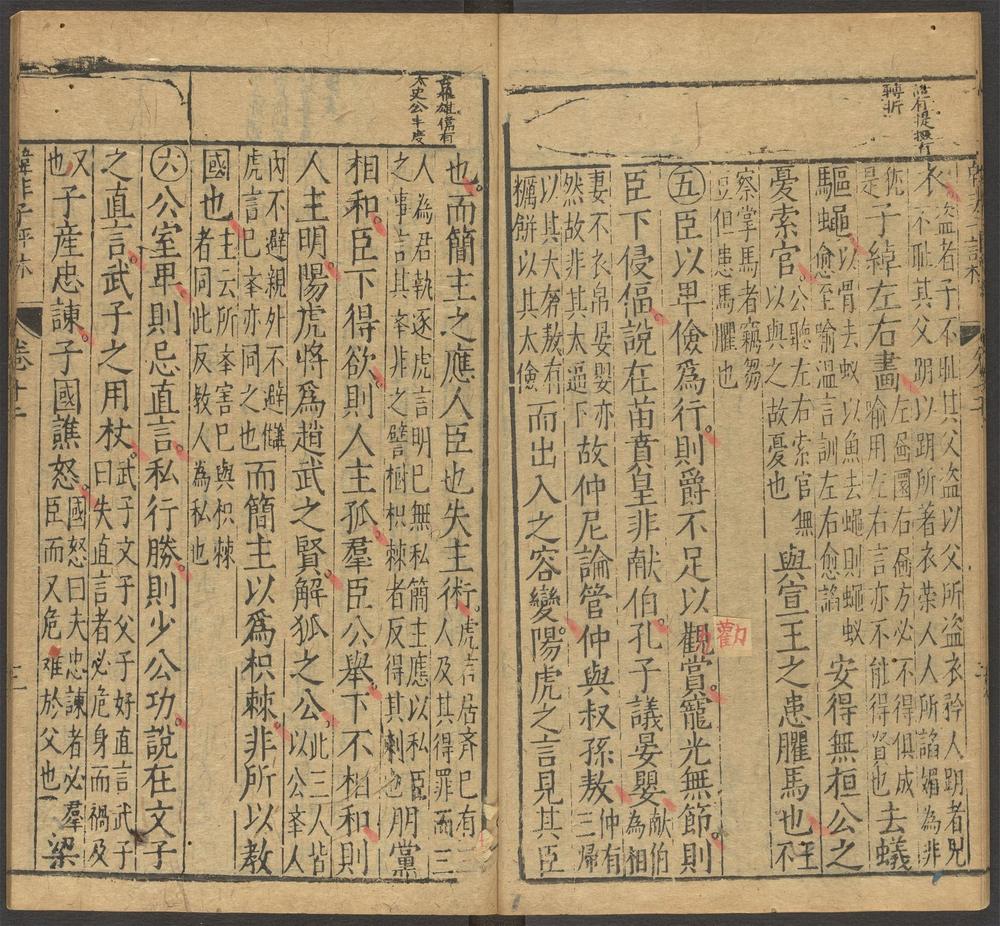 轉折
衣盜者子不恥其父盜以父所盜衣矜人刖者兒
不恥其父刖以刖所著衣榮人人所諂媚為非
猶是子綽左右畫左畫圓右畫方必不得俱成
喻用左右言亦不能得賢也去蟻
驅蠅以骨去蟻以魚去蠅則蠅蟻
愈至喻溫言訓左右愈諂安得無桓公之
憂索官公聽左右索官無
以與之故憂也與宣王之患臞馬也王不
察掌馬者竊芻
豆但患馬臞也
五臣以卑儉爲行則爵不足以觀賞寵光無節則
勸
臣下侵偪說在苗賁皇非献伯孔子議晏嬰献伯為相
妻不衣帛晏嬰亦
然故非其太逼下故仲尼論管仲與叔孫敖仲有三歸
以其大奢敖有
糲餅以其太儉而出入之容變陽虎之言見其臣
雄儁有
太史公丰度
也而簡主之應人臣也失主術虎言居齊已有三
人及其得罪而三
人為君執逐虎言明已無私簡主應以私臣
之事言其舉非之譬樹枳棘者反得其刺也朋黨
相和臣下得欲則人主孤羣臣公舉下不相和則
人主明陽虎將爲趙武之賢解狐之公此三人皆
以公舉人
內不避親外不避讎
虎言已舉亦同之也而簡主以爲枳棘非所以教
國也主云所舉害已與枳棘
者同此反教人為私也
六公室卑則忌直言私行勝則少公功說在文子
之直言武子之用杖武子文子父子好直言武子
曰失直言者必危身而禍及
又也子產忠諫子國譙怒國怒曰夫忠諫者必羣
臣而又危難於父也梁
韓非子評林
卷十二
三